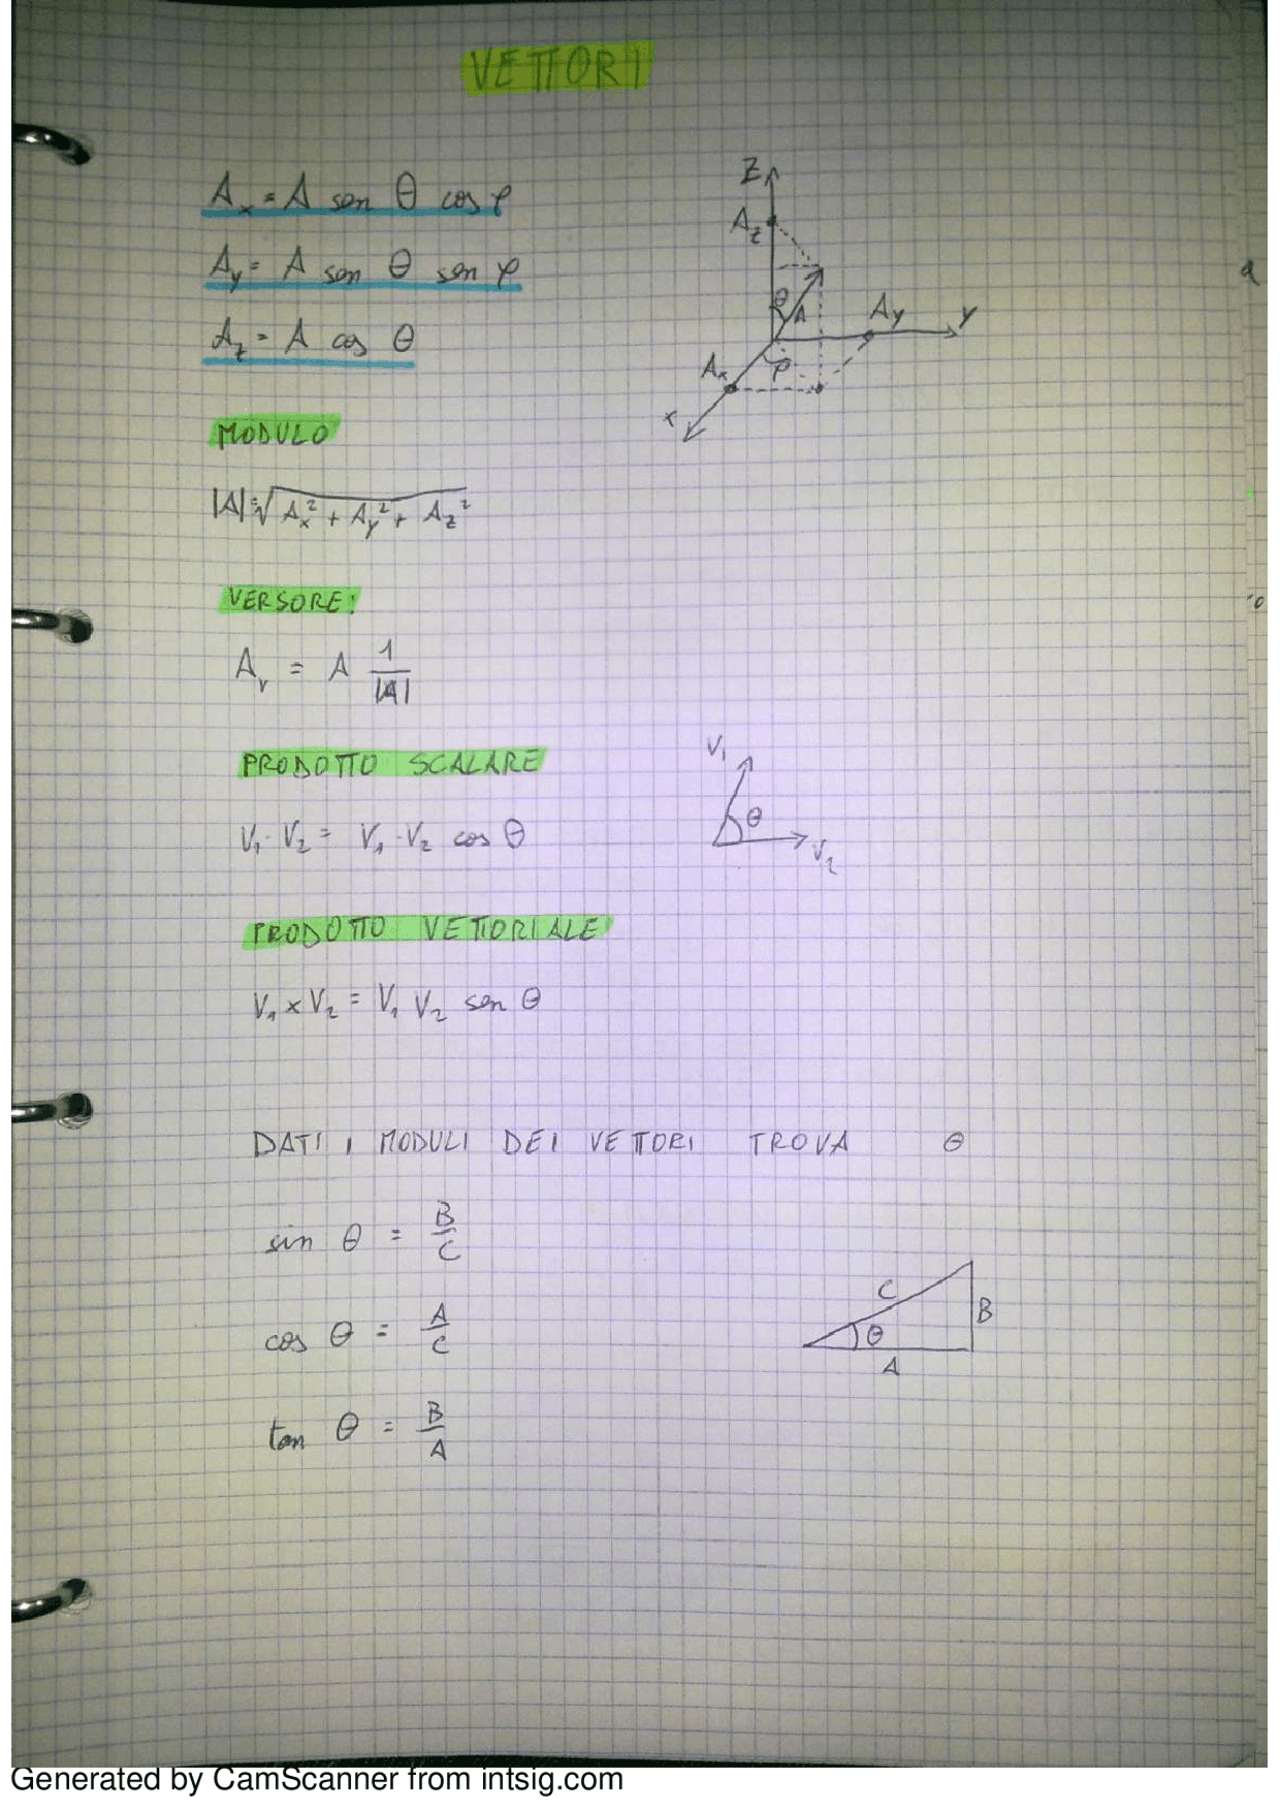 VETTORI
Aₓ = A sen θ cos φ
Aᵧ = A sen θ sen φ
A_z = A cos θ
Z
A_z
θ
A
Aᵧ
Y
Aₓ
φ
x
MODULO
|A| = √(Aₓ² + Aᵧ² + A_z²)
VERSORE:
Aᵥ = A 1/|A|
PRODOTTO SCALARE
V₁ · V₂ = V₁ · V₂ cos θ
V₁
θ
V₂
PRODOTTO VETTORIALE
V₁ × V₂ = V₁ V₂ sen θ
DATI I MODULI DEI VETTORI TROVA θ
sin θ = B/C
cos θ = A/C
tan θ = B/A
C
B
θ
A
Generated by CamScanner from intsig.com